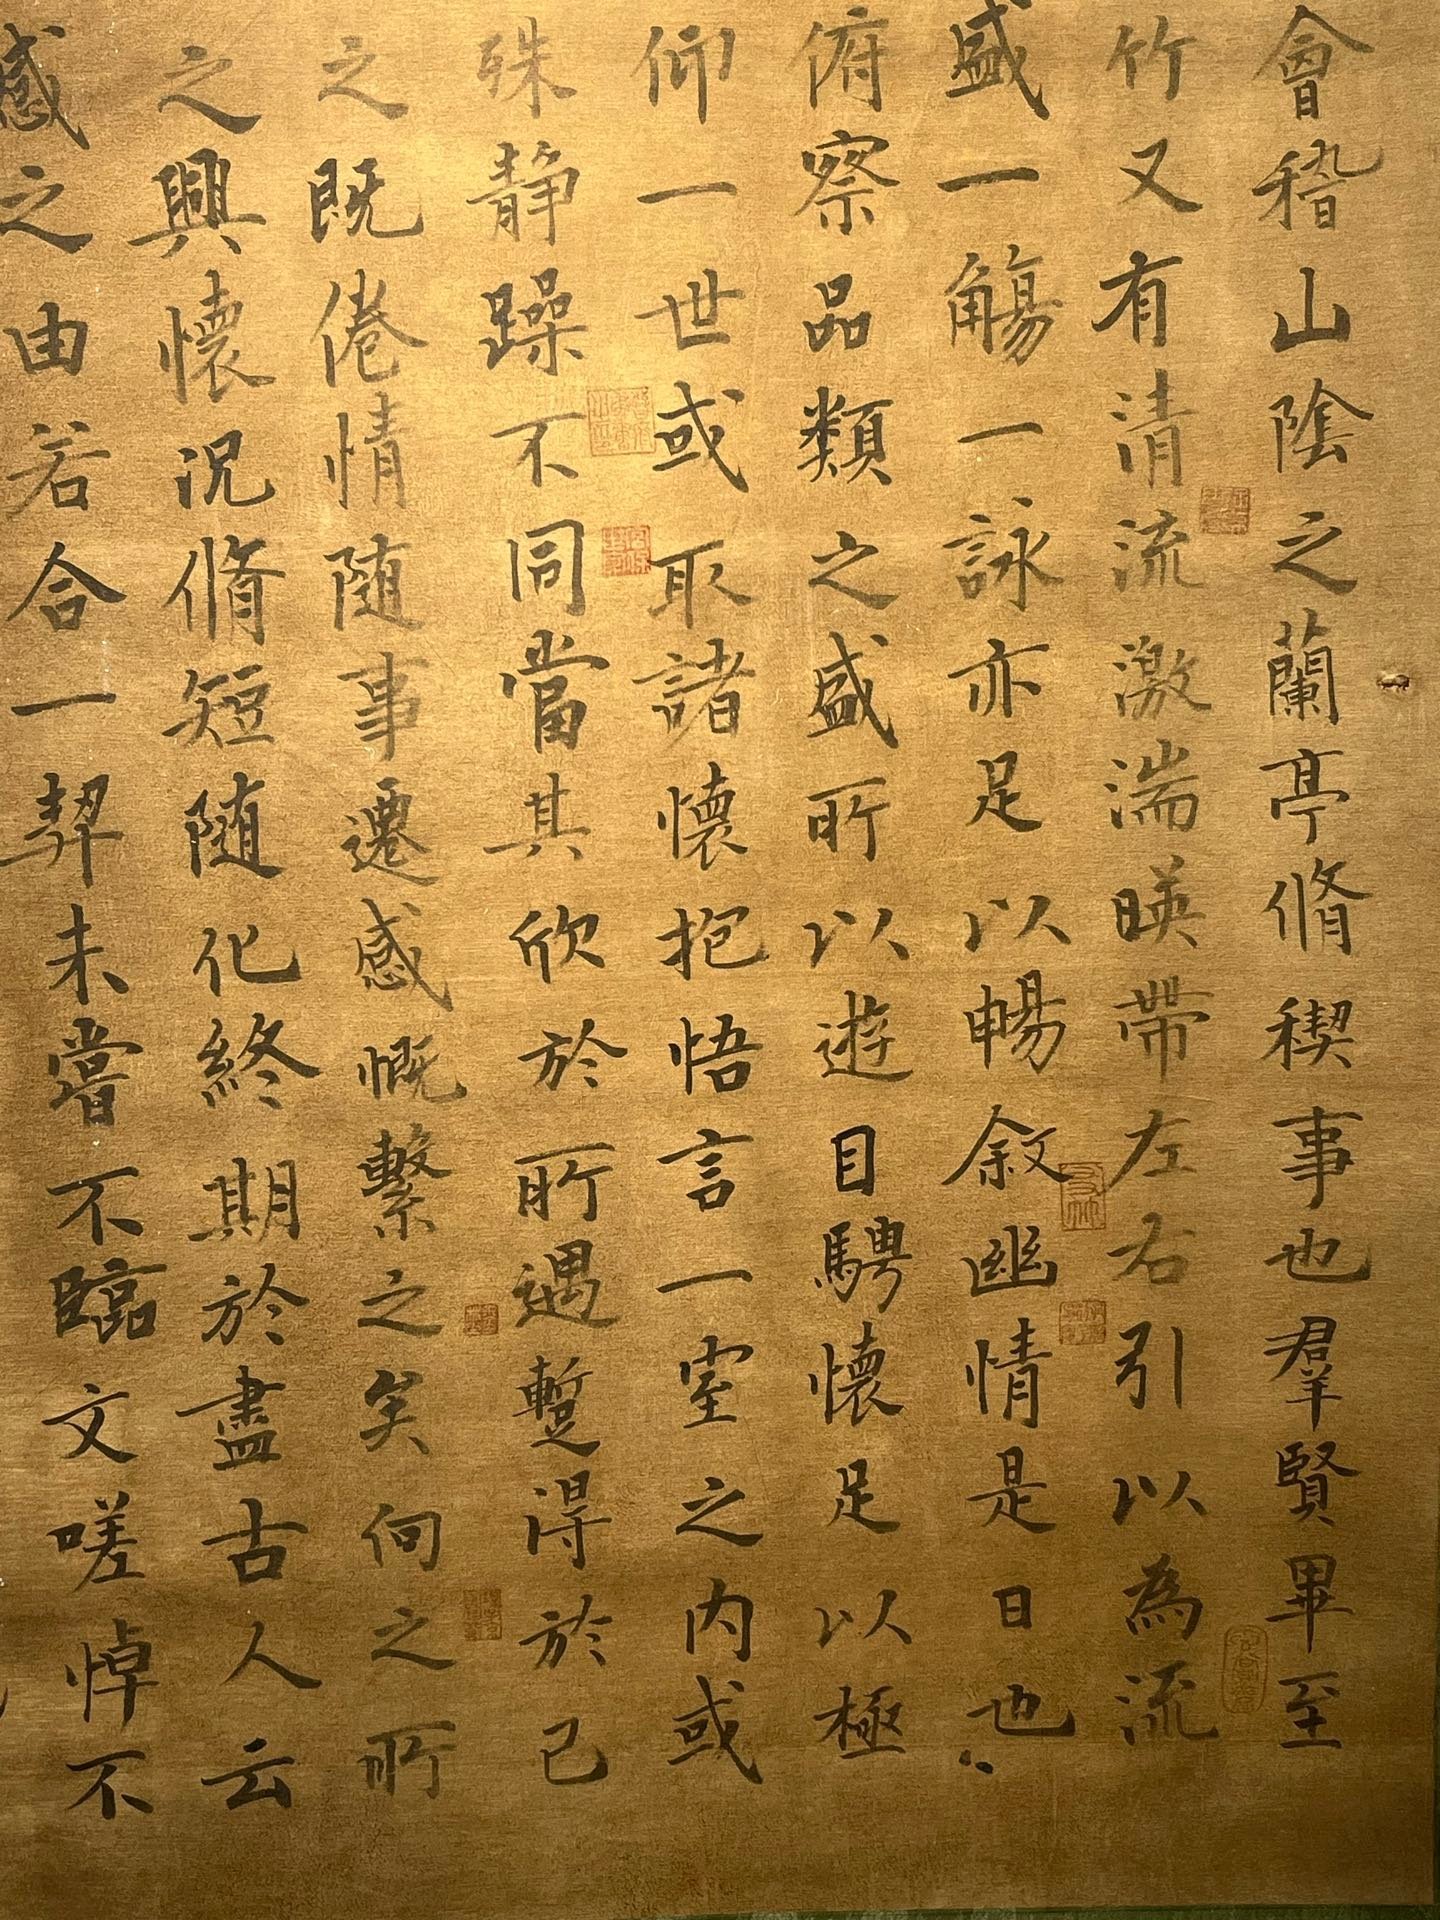 會稽山陰之蘭亭脩稧事也羣賢畢至
竹又有清流激湍暎帶左右引以為流
盛一觴一詠亦足以暢叙幽情是日也
俯察品類之盛所以遊目騁懷足以極
仰一世或取諸懷抱悟言一室之内或
殊静躁不同當其欣於所遇蹔得於己
之既倦情随事遷感慨繫之矣向之所
之興懷況脩短随化終期於盡古人云
感之由若合一契未嘗不臨文嗟悼不